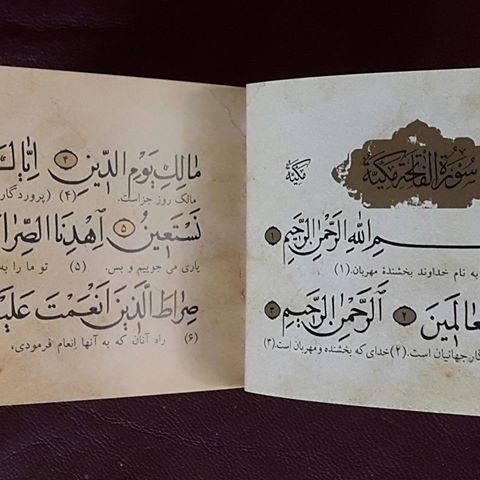 سُورَةُ الْفَاتِحَةِ مَكِّيَّة
مَكِّيَّة
ـسْمِ اللهِ الرَّحْمٰنِ الرَّحِيمِ ۱
به نام خداوند بخشندهٔ مهربان. (۱)
ـعَالَمِينَ ۲ اَلرَّحْمٰنِ الرَّحِيمِ ۳
ـگار جهانیان است. (۲) خدای که بخشنده و مهربان است (۳)
مَالِكِ يَوْمِ الدِّينِ ۴ اِيَّاكَ
مالک روز جزاست. (۴) (پروردگار
نَسْتَعِينُ ۵ اِهْدِنَا الصِّرَا
یاری می جوییم و بس. (۵) تو ما را به
صِرَاطَ الَّذِينَ اَنْعَمْتَ عَلَيْـ
(۶) راه آنان که به آنها انعام فرمودی،